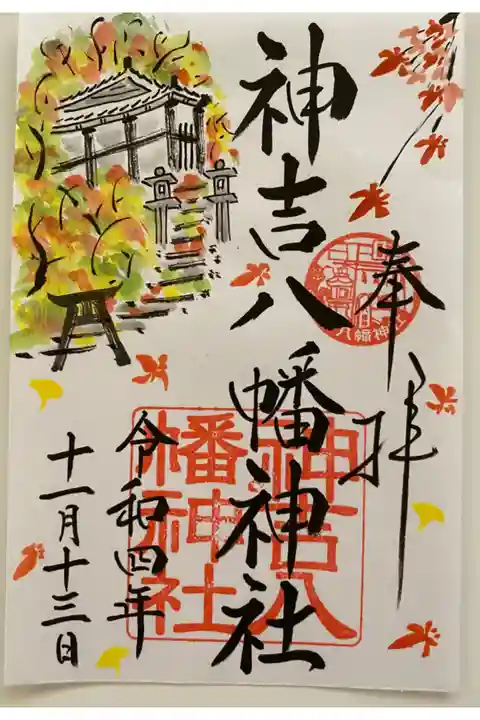 奉拝
八幡神社
神吉八幡神社
神吉八幡神社
令和四年
十一月十三日